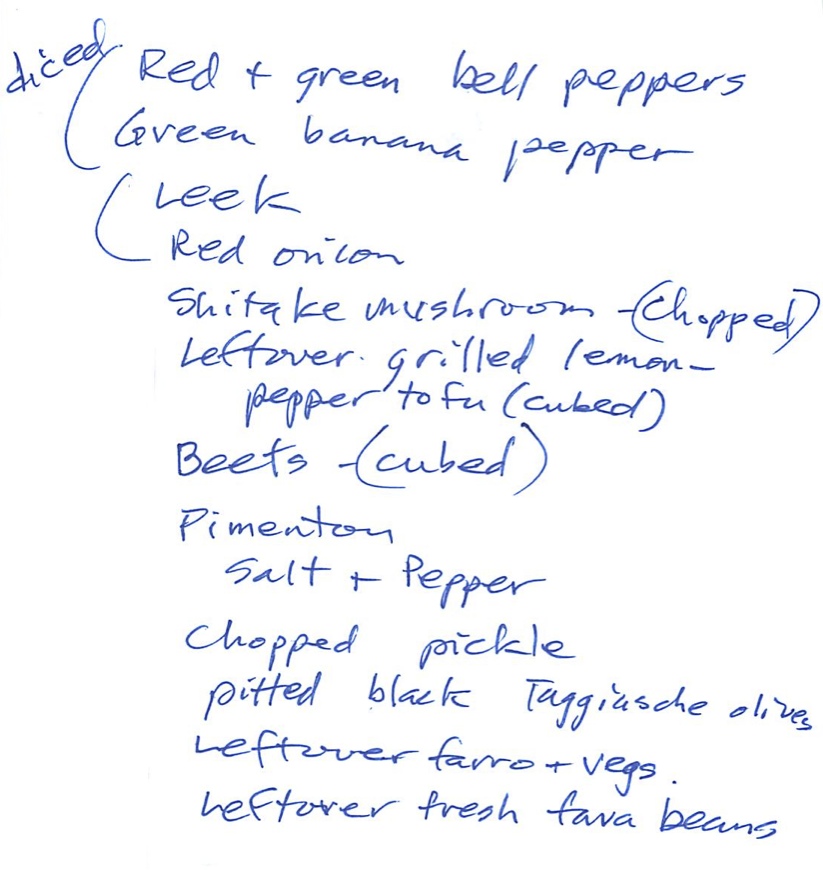 diced
Red + green bell peppers
Green banana pepper
Leek
Red onion
Shitake mushroom - (chopped)
Leftover grilled lemon-
pepper tofu (cubed)
Beets - (cubed)
Pimenton
Salt + Pepper
Chopped pickle
pitted black Taggiasche olives
Leftover farro + vegs.
Leftover fresh fava beans